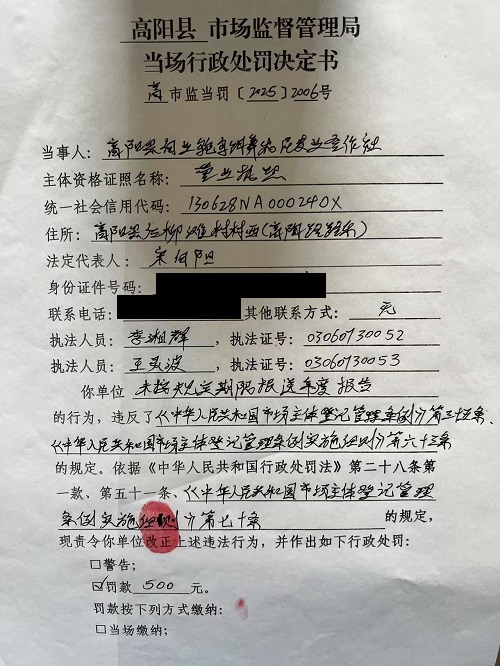 高阳县 市场监督管理局
当场行政处罚决定书
高 市监当罚〔2025〕2006号
当事人：高阳县 农业专业合作社
主体资格证照名称：营业执照
统一社会信用代码：130628NA000240X
住所：高阳县 柳滩村村西(高 路路东)
法定代表人：宋
身份证件号码：
联系电话： 其他联系方式：无
执法人员：李湘辉 执法证号：03060730052
执法人员：王 波 执法证号：03060730053
你单位 未按规定期限报送年度报告
的行为，违反了《中华人民共和国市场主体登记管理条例》第三十五条、
《中华人民共和国市场主体登记管理条例实施细则》第六十三条
的规定。依据《中华人民共和国行政处罚法》第二十八条第
一款、第五十一条、《中华人民共和国市场主体登记管理
条例实施细则》第七十条 的规定，
现责令你单位改正上述违法行为，并作出如下行政处罚：
□警告；
☑罚款 500 元。
罚款按下列方式缴纳：
□当场缴纳；